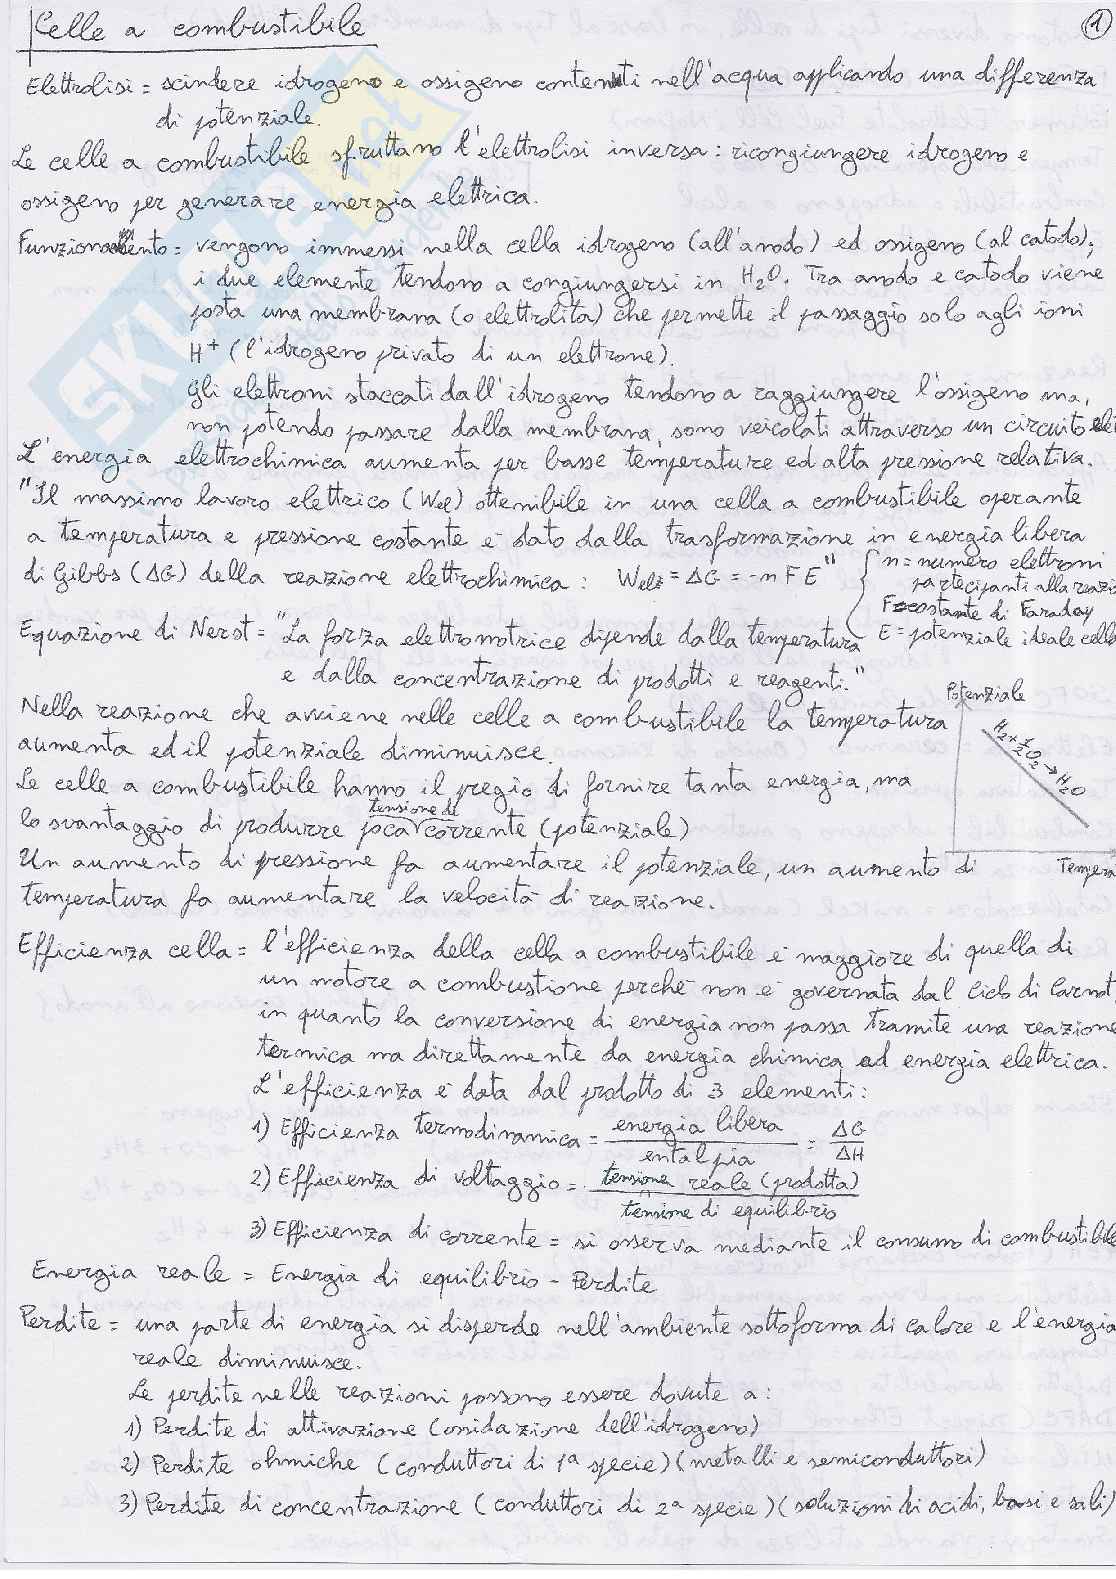 Celle a combustibile
1
Elettrolisi = scindere idrogeno e ossigeno contenuti nell'acqua applicando una differenza
di potenziale.
Le celle a combustibile sfruttano l'elettrolisi inversa: ricongiungere idrogeno e
ossigeno per generare energia elettrica.
Funzionamento = vengono immessi nella cella idrogeno (all'anodo) ed ossigeno (al catodo);
i due elemente tendono a congiungersi in H2O. Tra anodo e catodo viene
posta una membrana (o elettrolita) che permette il passaggio solo agli ioni
H+ (l'idrogeno privato di un elettrone).
Gli elettroni staccati dall'idrogeno tendono a raggiungere l'ossigeno ma,
non potendo passare dalla membrana, sono veicolati attraverso un circuito
L'energia elettrochimica aumenta per basse temperature ed alta pressione relativa.
"Il massimo lavoro elettrico (Wel) ottenibile in una cella a combustibile operante
a temperatura e pressione costante è dato dalla trasformazione in energia libera
di Gibbs (ΔG) della reazione elettrochimica: Wel = ΔG = -n F E"
n = numero elettroni
partecipanti alla reazi
F = costante di Faraday
E = potenziale ideale cella
Equazione di Nerst = "La forza elettromotrice dipende dalla temperatura
e dalla concentrazione di prodotti e reagenti."
Nella reazione che avviene nelle celle a combustibile la temperatura
aumenta ed il potenziale diminuisce.
Potenziale
H2 + 1/2 O2 → H2O
Tempera
Le celle a combustibile hanno il pregio di fornire tanta energia, ma
tensione di
lo svantaggio di produrre poca corrente (potenziale)
Un aumento di pressione fa aumentare il potenziale, un aumento di
temperatura fa aumentare la velocità di reazione.
Efficienza cella = l'efficienza della cella a combustibile è maggiore di quella di
un motore a combustione perché non è governata dal Ciclo di Carnot
in quanto la conversione di energia non passa tramite una reazione
termica ma direttamente da energia chimica ad energia elettrica.
L'efficienza è data dal prodotto di 3 elementi:
1) Efficienza termodinamica = energia libera / entalpia = ΔG / ΔH
2) Efficienza di voltaggio = tensione reale (prodotta) / tensione di equilibrio
3) Efficienza di corrente = si osserva mediante il consumo di combustibile
Energia reale = Energia di equilibrio - Perdite
Perdite = una parte di energia si disperde nell'ambiente sottoforma di calore e l'energia
reale diminuisce.
Le perdite nelle reazioni possono essere dovute a:
1) Perdite di attivazione (ossidazione dell'idrogeno)
2) Perdite ohmiche (conduttori di 1ª specie) (metalli e semiconduttori)
3) Perdite di concentrazione (conduttori di 2ª specie) (soluzioni di acidi, basi e sali)